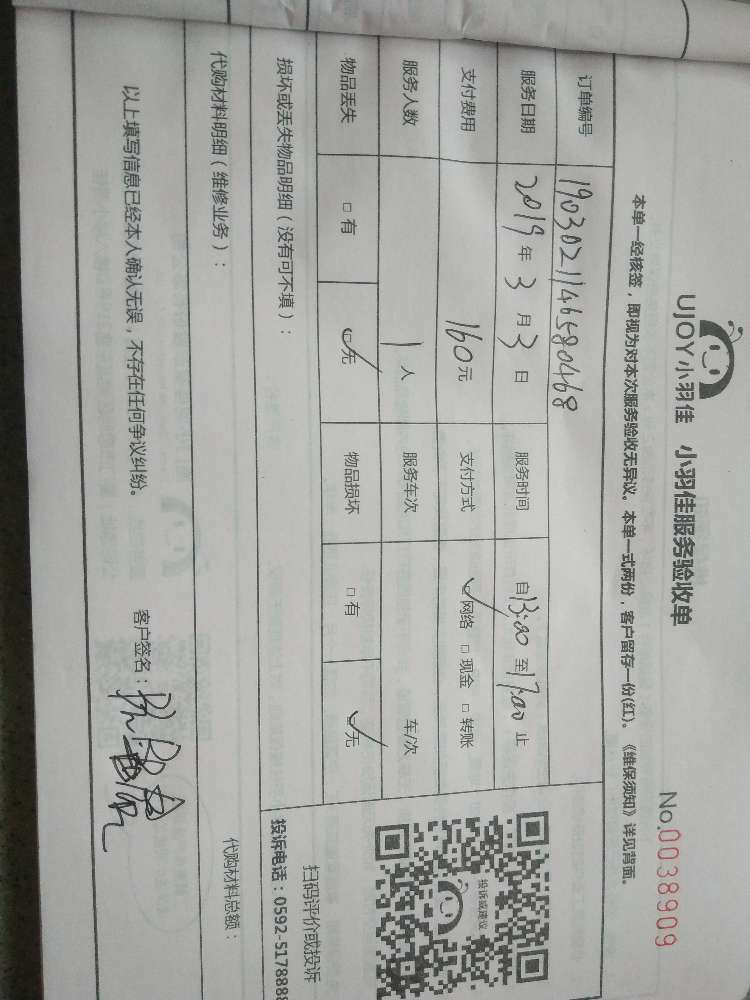 UJOY小羽佳 小羽佳服务验收单
No.0038909
本单一经核签，即视为对本次服务验收无异议。本单一式两份，客户留存一份(红)。《维保须知》详见背面。
订单编号 1903021146580468
服务日期 2019年3月3日 服务时间 自13:00至17:00止
支付费用 160元 支付方式 ☑网络 □现金 □转账
服务人数 1人 服务车次 车/次
物品丢失 □有 ☑无 物品损坏 □有 ☑无
投诉或建议
扫码评价或投诉
投诉电话：0592-5178888
损坏或丢失物品明细（没有可不填）：
代购材料明细（维修业务）：
代购材料总额：
以上填写信息已经本人确认无误，不存在任何争议纠纷。
客户签名：